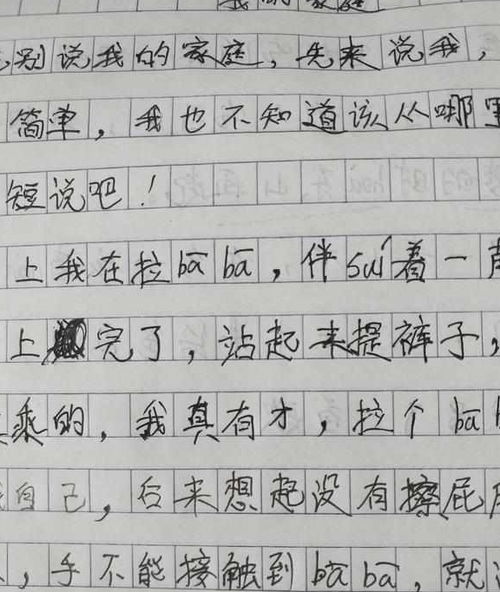 我的家庭
别说我的家庭，先来说我，
简单，我也不知道该从哪里
短说吧！
上我在拉bā bā，伴suí着一声
上完了，站起来提裤子，
乘的，我真有才，拉个bā
自己，后来想起没有擦屁
，手不能接触到bā bā，就